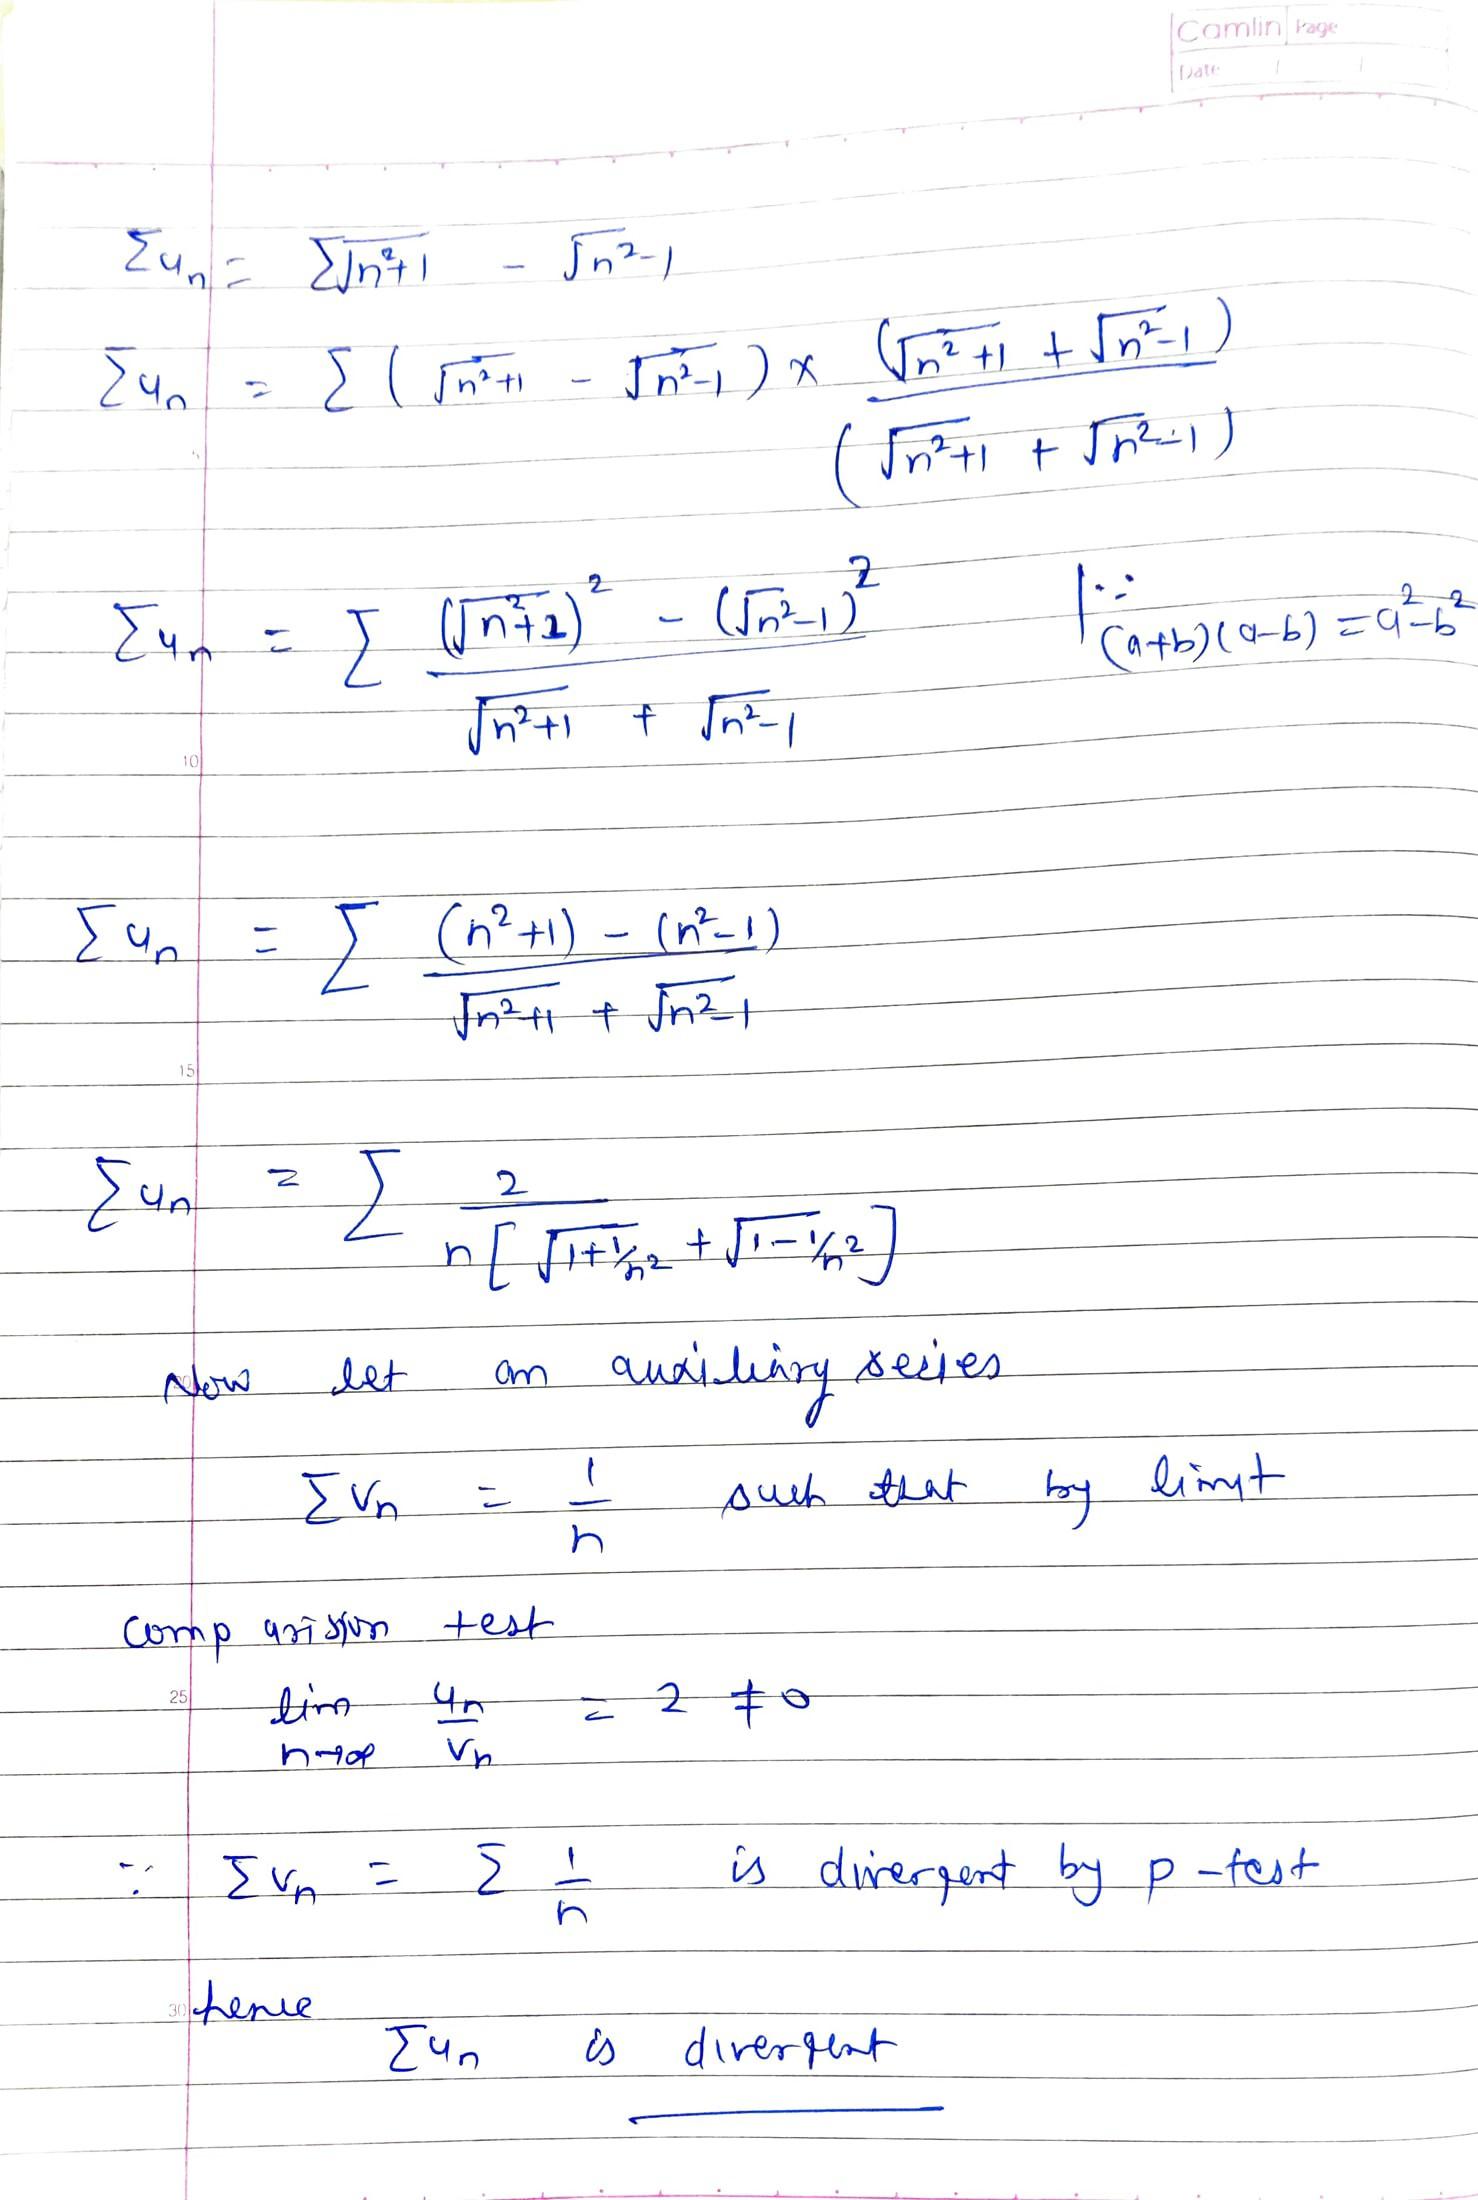 Camlin Page
Date / /
Σuₙ = Σ√n²+1 - √n²-1
Σuₙ = Σ ( √n²+1 - √n²-1 ) × (√n²+1 + √n²-1) / (√n²+1 + √n²-1)
Σuₙ = Σ (√n²+1)² - (√n²-1)² / √n²+1 + √n²-1 | ∵ (a+b)(a-b) = a²-b²
10
Σuₙ = Σ (n²+1) - (n²-1) / √n²+1 + √n²-1
15
Σuₙ = Σ 2 / n[√1+1/n² + √1-1/n²]
Now let an auxiliary series
Σvₙ = 1/n such that by limit
comparission test
25
lim n→∞ uₙ/vₙ = 2 ≠ 0
∵ Σvₙ = Σ 1/n is divergent by p-test
30 hence
Σuₙ is divergent